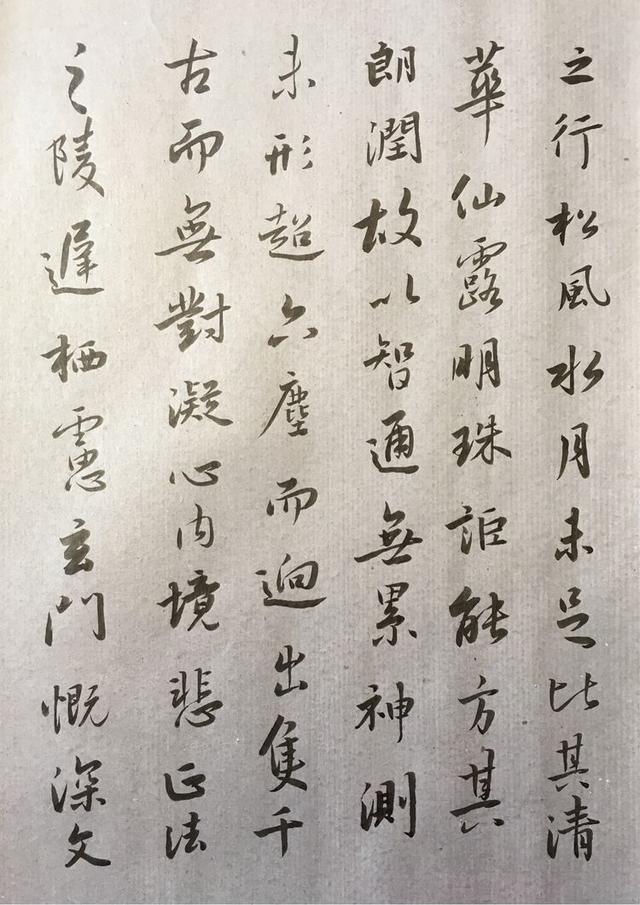 之行松風水月未足比其清
華仙露明珠詎能方其
朗潤故以智通無累神測
未形超六塵而迥出隻千
古而無對凝心內境悲正法
之陵遲栖慮玄門慨深文